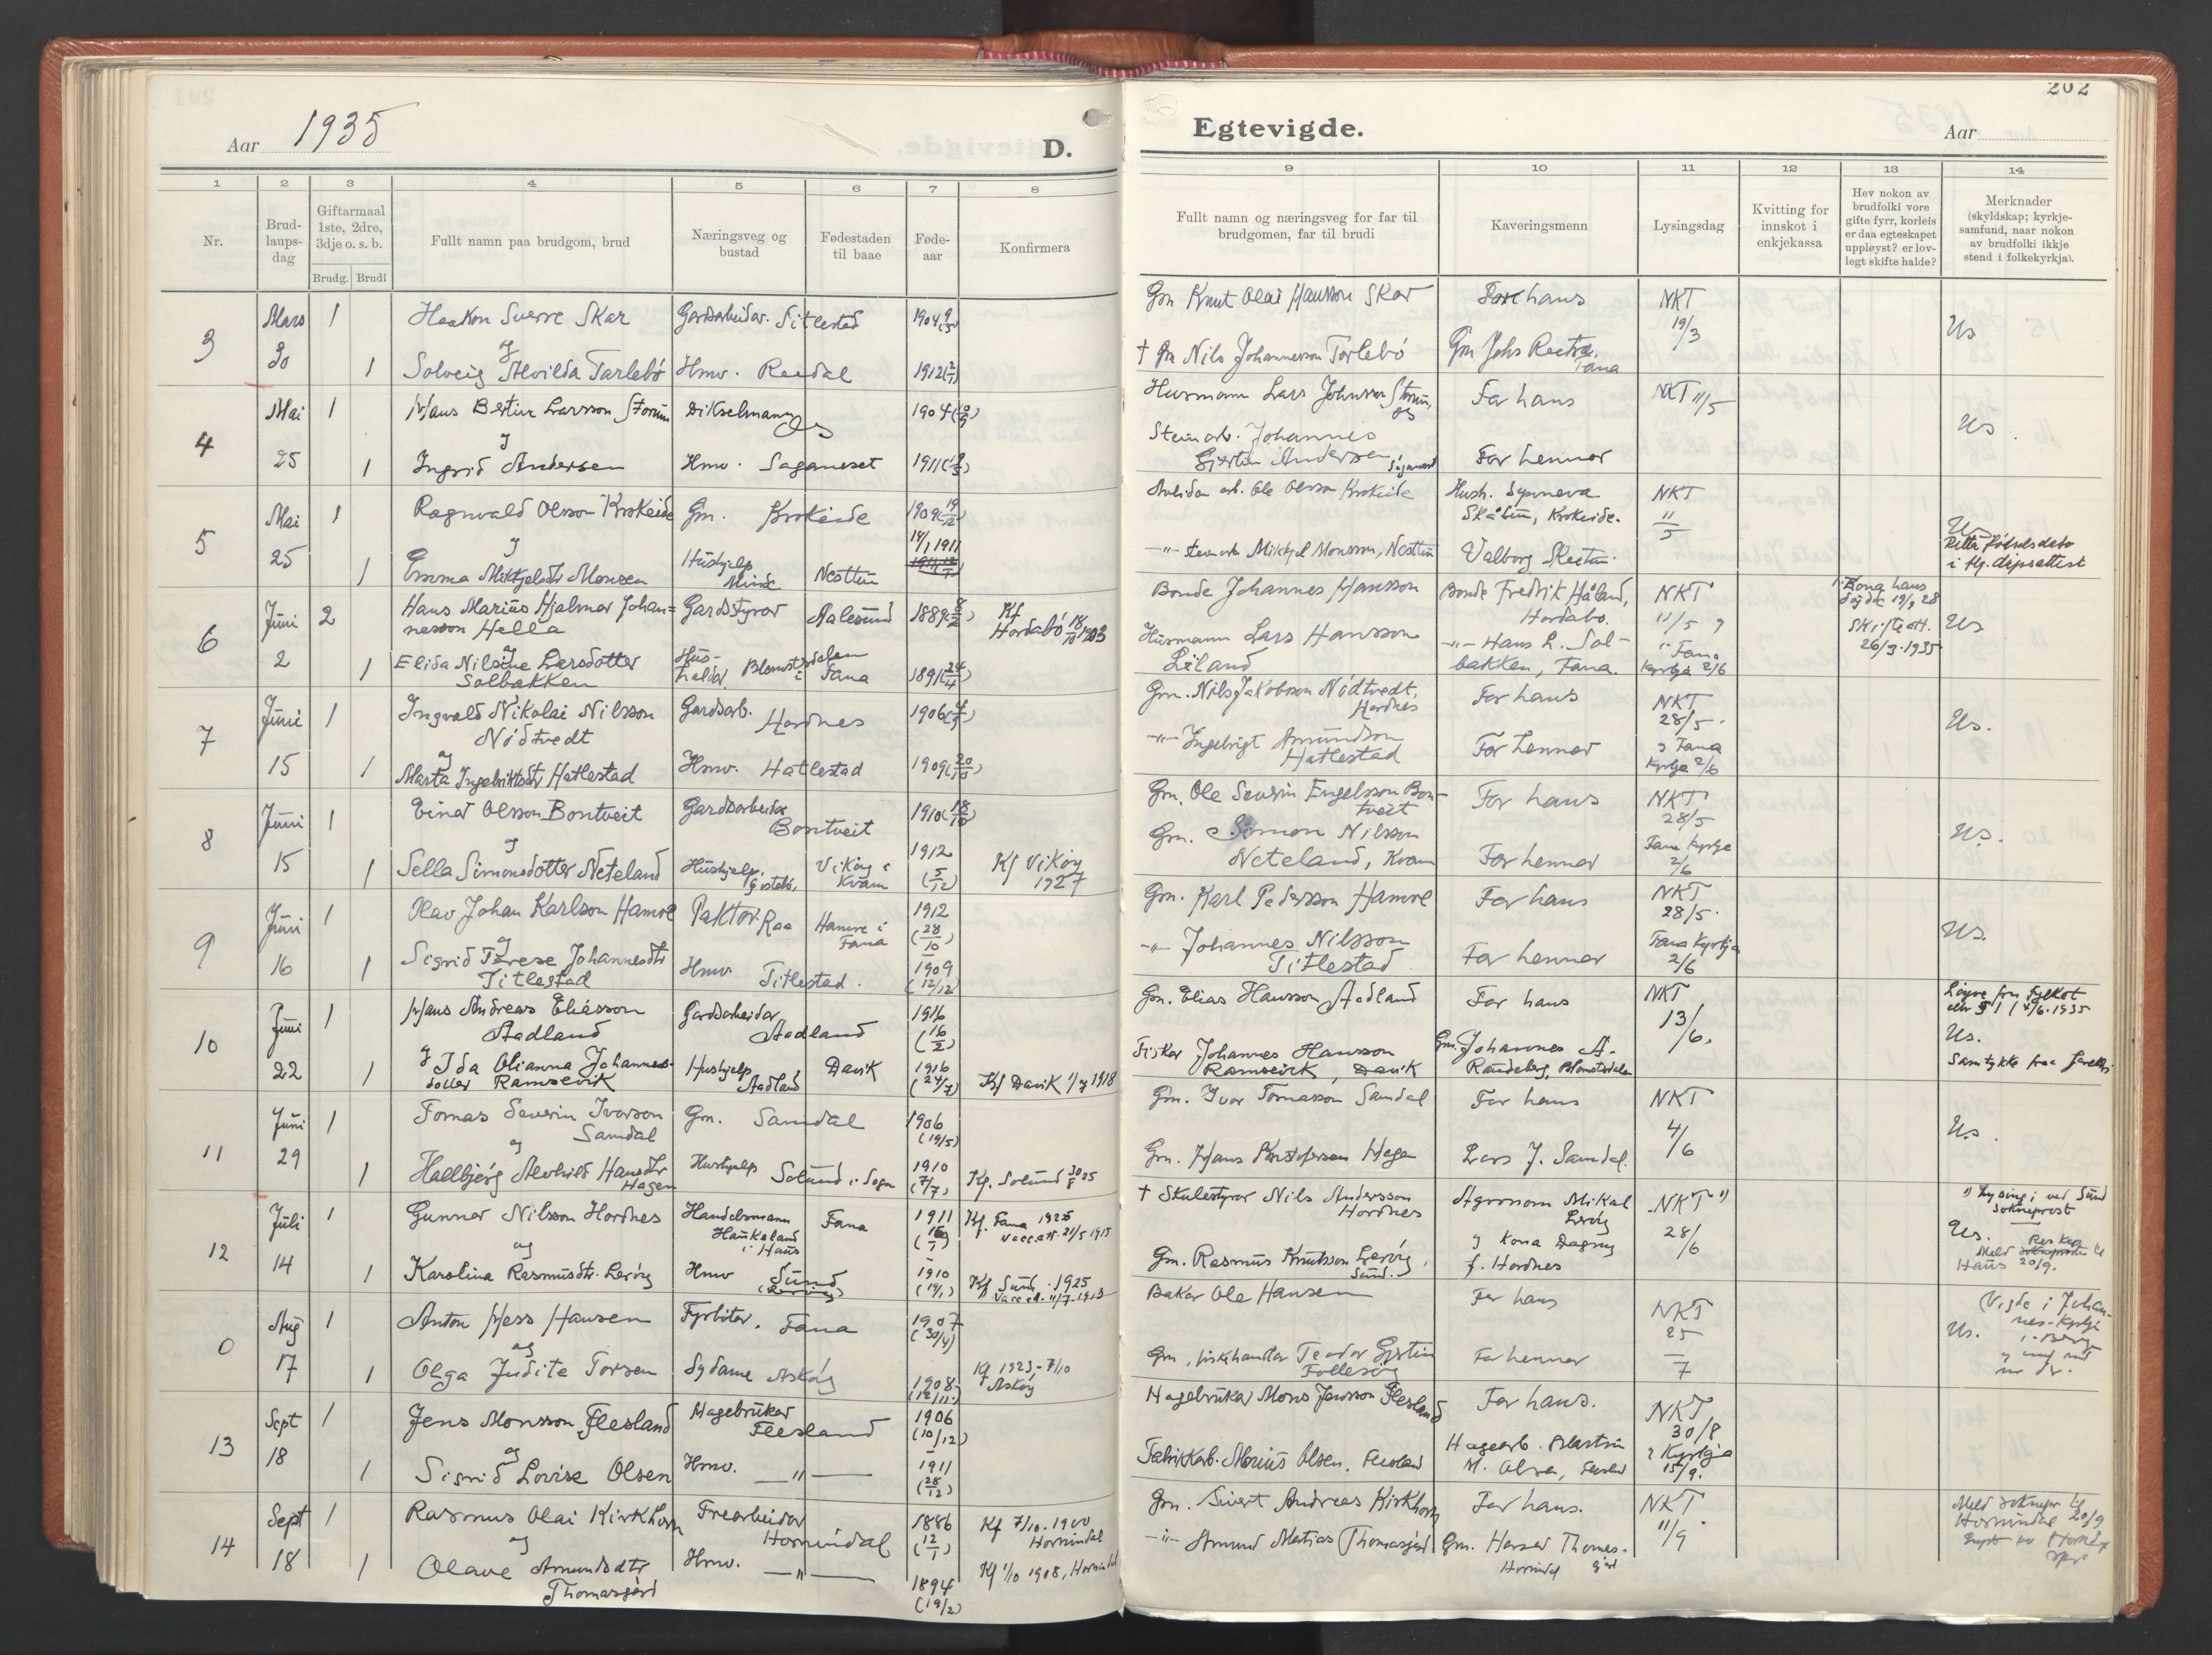 Aar 1935
D.
1 2 3 4 5 6 7 8
Nr.
Brud-
laups-
dag
Giftarmaal
1ste, 2dre,
3dje o. s. b.
Brudg. Brudi
Fullt namn paa brudgom, brud
Næringsveg og
bustad
Fødestaden
til baae
Føde-
aar
Konfirmera
3 Mars 30
1 Haakon Sverre Skar Gardsarbeidar. Titlestad 1904
og
1 Solveig Alvilda Tarlebø Hmv. Reedal 1912
4 Mai 25
1 Hans Bertin Larsson Storum Dikselmann Os 1904
og
1 Ingrid Andersen Hmv. Saganeset 1911
5 Mai 25
1 Ragnvald Olsson Krokeide Gm. Krokeide 1909
og 14/1 1911
1 Emma Mikkjelsdtr Monsen Hushjelp Minde Nesttun
6 Juni 2
2 Hans Marius Hjalmar Johan=
nesson Hella Gardstyrar Aalesund 1889 Kf Hordabø 18/10 1903
og
1 Elida Nilsine Larsdotter
Solbakken Hus-
haldar, Blomsterdalen i Fana 1891 (24/4)
7 Juni 15
1 Ingvald Nikolai Nilsson
Nødtvedt Gardsarb. Hordnes 1906
og
1 Marta Ingebriktsdtr Hatlestad Hmv. Hatlestad 1909 (20/10)
8 Juni 15
1 Einar Olsson Bontveit Gardsarbeidar Bontveit 1910 (18/10)
og
1 Sella Simonsdotter Neteland Hushjelp, Vikøy i Kvam 1912 (5/12) Kf Vikøy 1927
9 Juni 16
1 Olav Johan Karlson Hamre Paktor. Raa Hamre i Fana 1912 (28/10)
og
1 Sigrid Terese Johannesdtr
Titlestad Hmv. Titlestad. 1909 (12/12)
10 Juni 22
1 Hans Andreas Eliasson
Aadland Gardsarbeidar Aadland 1916 (16/2)
1 og Ida Olianna Johannes-
dotter Ramsevik Hushjelp Aadland Davik 1916 (24/7) Kf Davik 1/7 1918
11 Juni 29
1 Tomas Severin Ivarson
Samdal Gm. Samdal 1906 (19/5)
og
1 Hallbjørg Alvhild Hansdtr
Hagen Hushjelp Solund i Sogn 1910 (7/7) Kf. Solund 30/8 25
12 Juli 14
1 Gunnar Nilsson Hordnes Handelsmann
Haukeland
i Haus Fana 1911 Kf. Fana 1925
vacc.att. 21/5 1915
og
1 Karolina Rasmusdtr. Lerøy Hmv Sund (Lerøy) 1910 (19/1) Kf Sund 1925
vacc.att. 11/7 1913
0 Aug 17
1 Anton Hess Hansen Fyrbøter. Fana 1907 (30/4)
og
1 Olga Judite Torsen Sydame Askøy 1908 (12/11) Kf 1923 - 7/10
Askøy
13 Sept 18
1 Jens Monsson Flesland Hagebrukar Flesland 1906 (10/12)
og
1 Sigrid Lovise Olsen Hmv. —"— 1911 (28/12)
14 Sept 18
1 Rasmus Olai Kirkhorn Trearbeidar Hornindal 1886 (12/1) Kf 7/10. 1900
Hornindal
og
1 Olave Amundsdtr
Thomasgård Hmv. —"— 1894 (19/2) Kf 1/10 1908, Hornindal
202
Egtevigde.
Aar
9 10 11 12 13 14
Fullt namn og næringsveg for far til
brudgomen, far til brudi
Kaveringsmenn
Lysingsdag
Kvitting for
innskot i
enkjekassa
Hev nokon av
brudfolki vore
gifte fyrr, korleis
er daa egteskapet
uppløyst? er lov-
legt skifte halde?
Merknader
(skyldskap; kyrkje-
samfund, naar nokon
av brudfolki ikkje
stend i folkekyrkja).
Gm Knut Olai Hansson Skar Far hans NKT 19/3 Us
† Gm Nils Johannesson Tarlebø Gm Johs Reedal, Fana
Husmann Lars Johnsson Storum, Os Far hans NKT 11/5 Us.
Steinarb. Johannes
Gjertin Andersen, Saganeset Far hennar
Arbeidar Ole Olsson Krokeide Hush. Synneva
Skåtun, Krokeide. NKT 11/5
—"— steinarb Mikkjel Monsson, Nesttun Valborg Skeetun. Us
Rette fødselsdato
i flg. dåpsattest
Bonde Johannes Hansson Bonde Fredrik Håland,
Hordabø. NKT 11/5 og i Fana kyrkja 2/6
1. Kona hans
døydde 19/9 28
Skifteatt.
26/3 1935 Us
Husmann Lars Hansson
Liland —"— Hans L. Sol-
bakken, Fana.
Gm. Nils Jakobson Nødtvedt,
Hordnes Far hans NKT 28/5. Us.
—"— Ingebrigt Amundson
Hatlestad Far hennar og Fana kyrkja 2/6
Gm. Ole Severin Engelsson Bon-
tveit Far hans NKT 28/5 Us.
Gm. Simon Nilsson
Neteland, Kvam Far hennar Fana kyrkja 2/6
Gm. Karl Pedersson Hamre Far hans NKT 28/5. Us.
—"— Johannes Nilsson
Titlestad Far hennar Fana kyrkja 2/6
Gm. Elias Hansson Aadland Far hans NKT 13/6. Løyve frå Fylket
4/6. 1935
Us.
Fiskar Johannes Hansson
Ramsevik, Davik Gm. Johannes A.
Raudeberg, Blomsterdalen Samtykke fraa foreldri
Gm. Ivar Tomasson Samdal Far hans NKT 4/6 Us.
Gm. Hans Kristofersson Hagen Lars J. Samdal.
† Skulestyrar Nils Andersson
Hordnes Agronom Mikal
Lerøy NKT 1) 28/6 1) Lysing i ved Sund
sokneprest
og kona Dagny
f. Hordnes Us.
Haus 20/9.
Gm. Rasmus Knutsson Lerøy,
Sund.
Bakar Ole Hansen Far hans NKT 25/7 (Vigde i Johan-
nes-Kyrkja
i Berg
Us.
Gm, fiskehandlar Teodor Gjertin
Follesøy Far hennar
Hagebrukar Mons Jensson Flesland Far hans. NKT 30/8
Fabrikkarb. Marius Olsen, Flesland Hagearb. Martin
M. Olsen, Flesland i Kyrkja 15/9.
Gm. Sivert Andreas Kirkhorn Far hans. NKT 11/9 Meld soknepr. til
Hornindal 20/9
—"— Amund Matias Thomasgård Gm. Herser Thomas-
gård
Hornindal